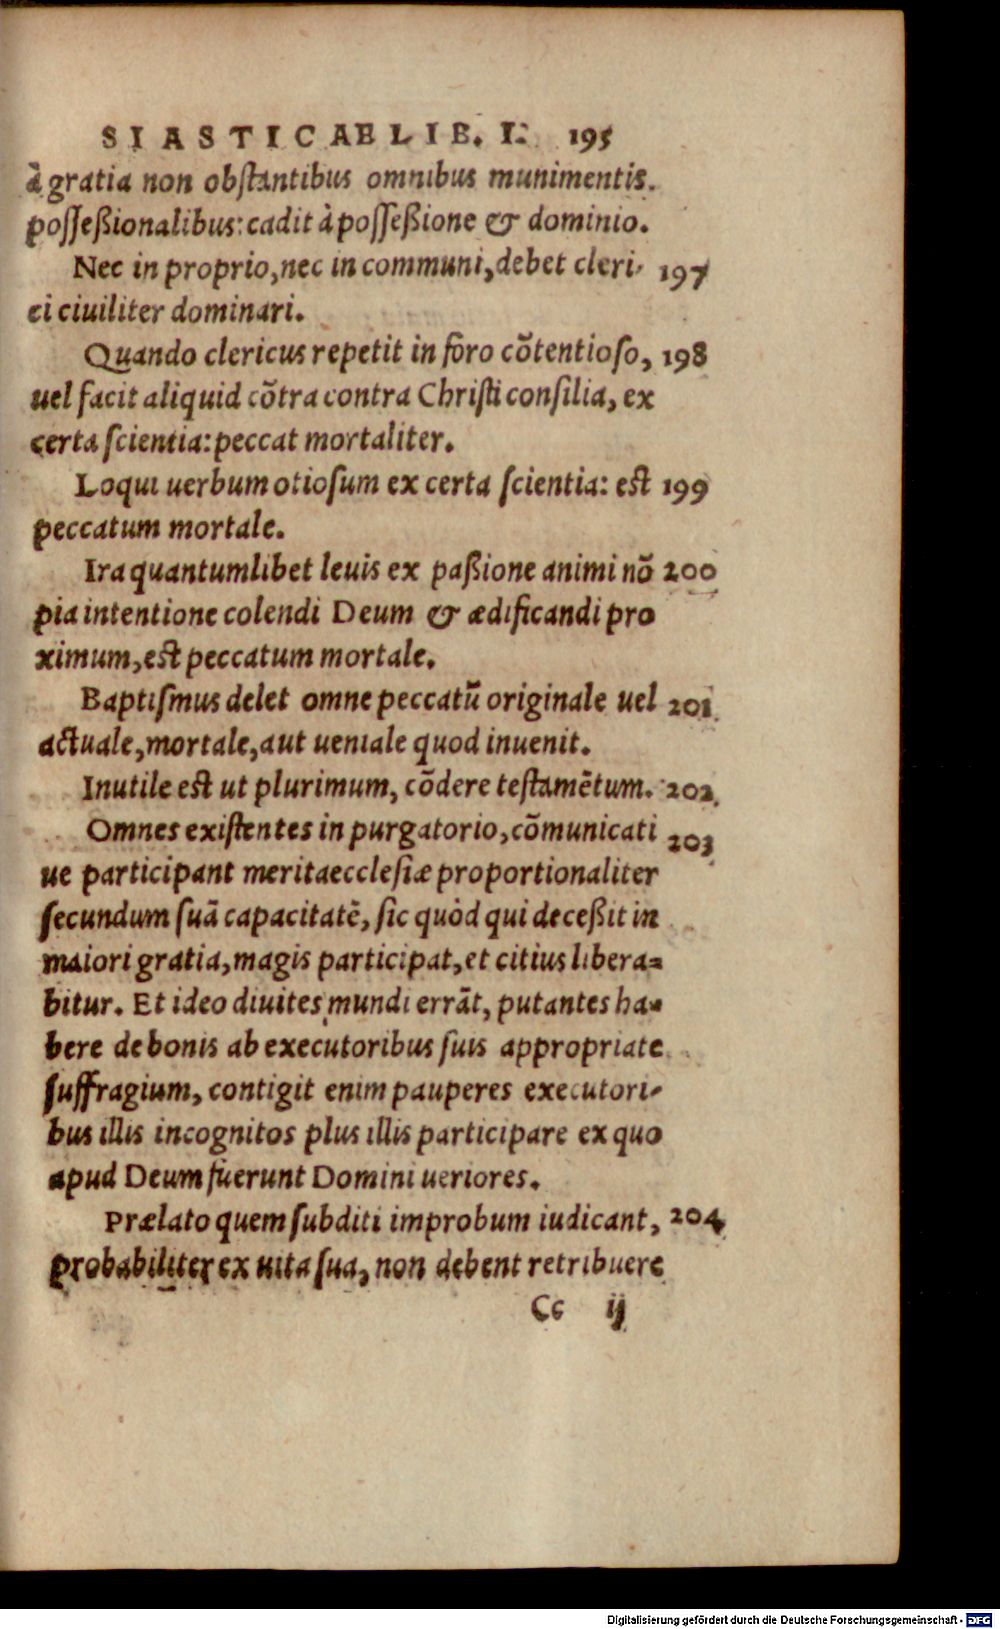 SIASTICAE LIB. I. 195
à gratia non obstantibus omnibus munimentis.
posseßionalibus: cadit à posseßione & dominio.
Nec in proprio, nec in communi, debet cleri- 197
ci ciuiliter dominari.
Quando clericus repetit in foro cõtentioso, 198
uel facit aliquid cõtra contra Christi consilia, ex
certa scientia: peccat mortaliter.
Loqui uerbum otiosum ex certa scientia: est 199
peccatum mortale.
Ira quantumlibet leuis ex paßione animi nõ 200
pia intentione colendi Deum & ædificandi pro
ximum, est peccatum mortale.
Baptismus delet omne peccatũ originale uel 201
actuale, mortale, aut ueniale quod inuenit.
Inutile est ut plurimum, cõdere testamẽtum. 202
Omnes existentes in purgatorio, cõmunicati 203
ue participant merita ecclesiæ proportionaliter
secundum suã capacitatẽ, sic quòd qui deceßit in
maiori gratia, magis participat, et citius libera-
bitur. Et ideo diuites mundi errãt, putantes ha-
bere de bonis ab executoribus suis appropriate
suffragium, contigit enim pauperes executori-
bus illis incognitos plus illis participare ex quo
apud Deum fuerunt Domini ueriores.
Prælato quem subditi improbum iudicant, 204
probabiliter ex uita sua, non debent retribuere
Cc ij
Digitalisierung gefördert durch die Deutsche Forschungsgemeinschaft - DFG